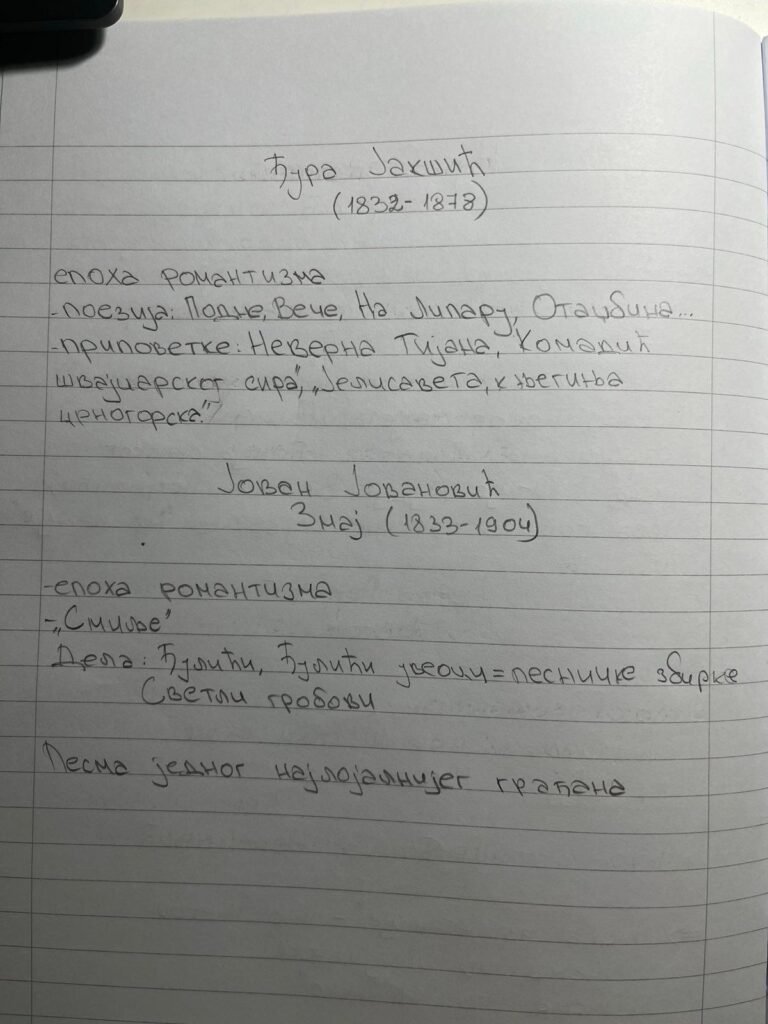 Ђура Јакшић
(1832-1878)
епоха романтизма
-поезија: Подне, Вече, На Липару, Отаџбина...
-приповетке: Неверна Тијана, Комадић
швајцарског сира", „Јелисавета, књегиња
црногорска"
Јован Јовановић
Змај (1833-1904)
-епоха романтизма
-„Смиље"
Дела: Ђулићи, Ђулићи увеоци = песничке збирке
Светли гробови
Песма једног најлојалнијег грађана